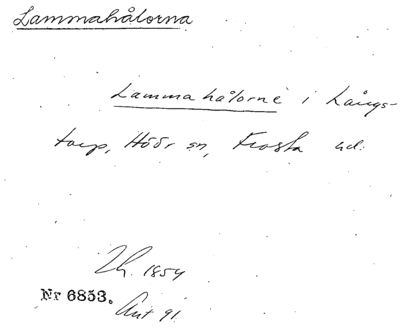 Lammahålorna
Lammahålorne i Långs-
torp, Höör sn, Frosta hd.
Zh. 1854
Nr 6853.
Ant 91.